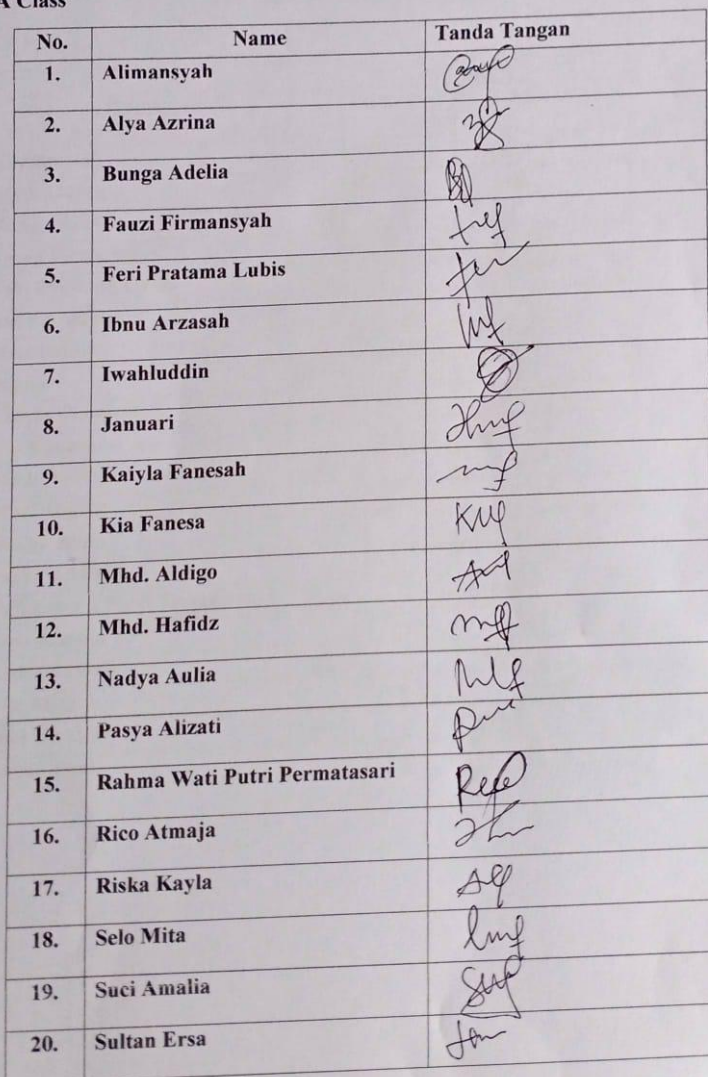 A Class
No. Name Tanda Tangan
1. Alimansyah
2. Alya Azrina
3. Bunga Adelia
4. Fauzi Firmansyah
5. Feri Pratama Lubis
6. Ibnu Arzasah
7. Iwahluddin
8. Januari
9. Kaiyla Fanesah
10. Kia Fanesa
11. Mhd. Aldigo
12. Mhd. Hafidz
13. Nadya Aulia
14. Pasya Alizati
15. Rahma Wati Putri Permatasari
16. Rico Atmaja
17. Riska Kayla
18. Selo Mita
19. Suci Amalia
20. Sultan Ersa